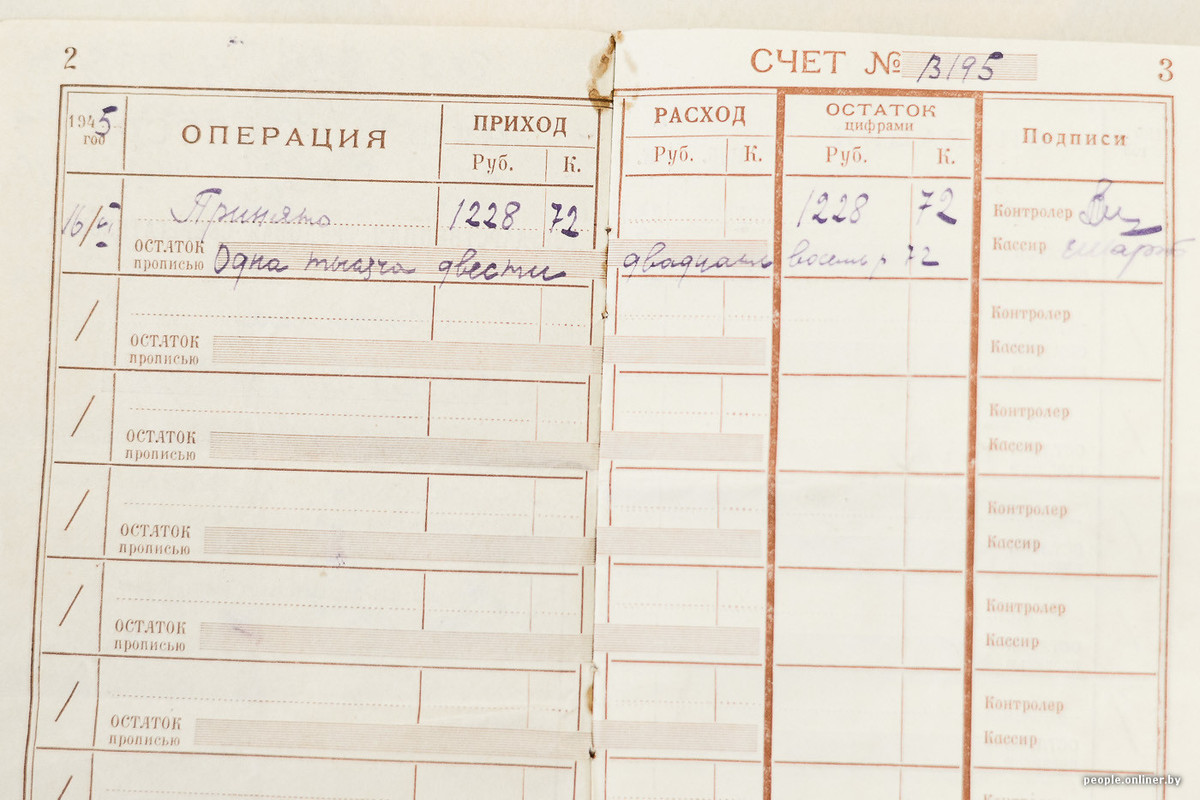 2
СЧЕТ № В195
3
1945 год
ОПЕРАЦИЯ
ПРИХОД
Руб. К.
РАСХОД
Руб. К.
ОСТАТОК
цифрами
Руб. К.
Подписи
16/VI Принято 1228 72 1228 72 Контролер
ОСТАТОК прописью Одна тысяча двести двадцать восемь р 72 Кассир
ОСТАТОК прописью
Контролер
Кассир
ОСТАТОК прописью
Контролер
Кассир
ОСТАТОК прописью
Контролер
Кассир
ОСТАТОК прописью
Контролер
Кассир
ОСТАТОК прописью
Контролер
Кассир
people.onliner.by